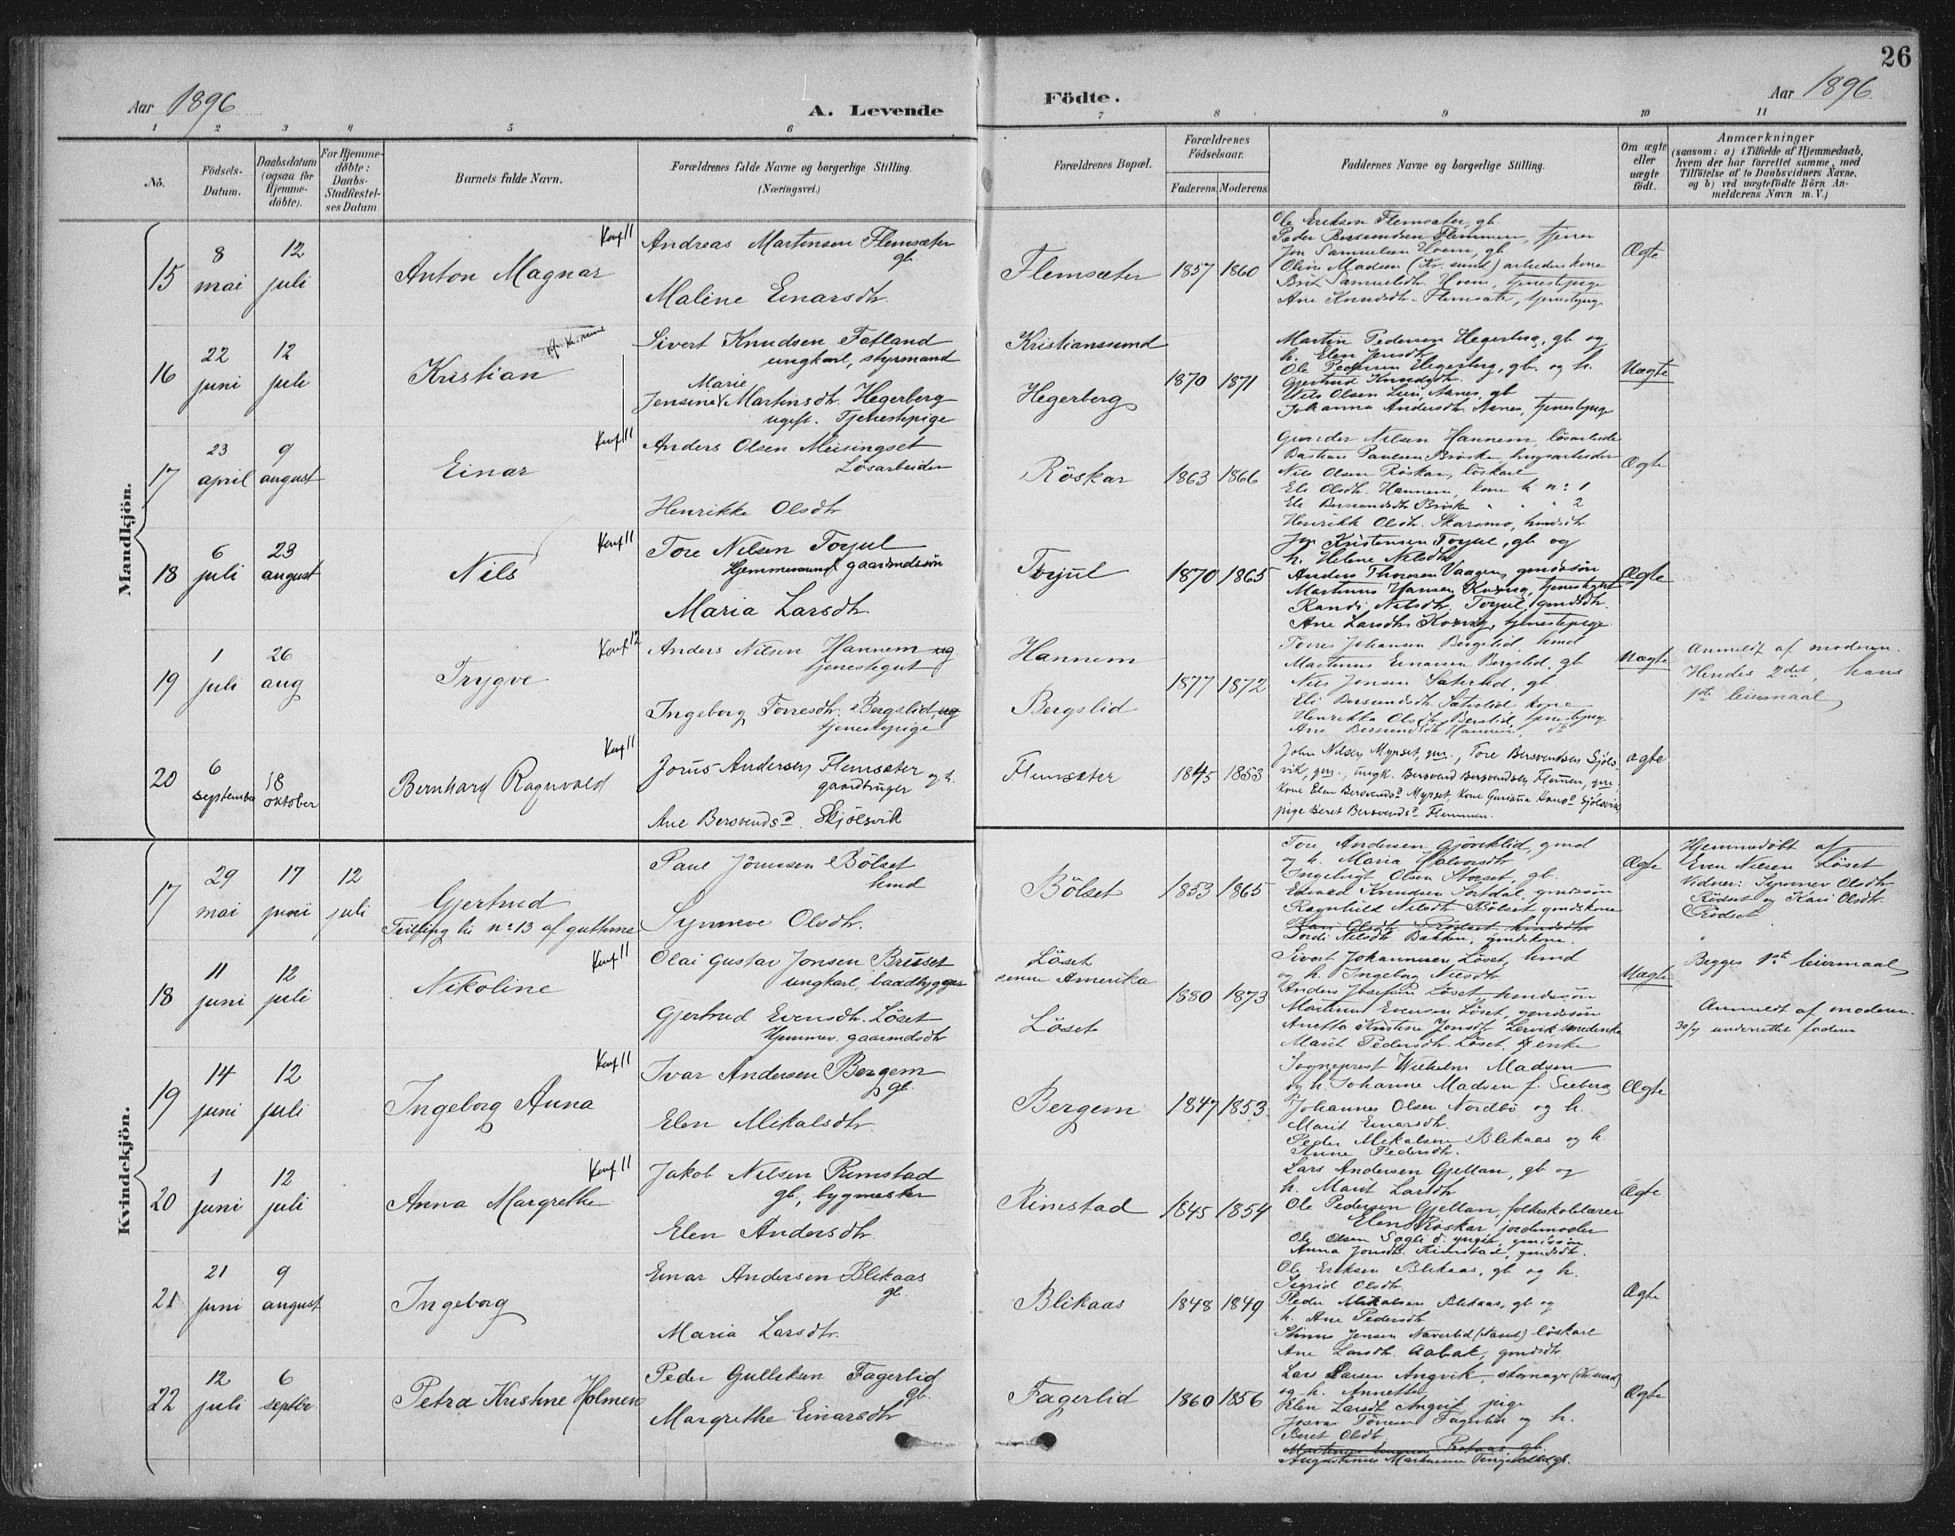 26
Aar 1896
A. Levende Födte.
Aar 1896
1 2 3 4 5 6 7 8 9 10 11
No.
Födsels-Datum.
Daabsdatum (ogsaa for Hjemme-døbte).
For Hjemme-døbte: Daabs-Stadfæstel-ses Datum
Barnets fulde Navn.
Forældrenes fulde Navne og borgerlige Stilling.
(Næringsvei.)
Forældrenes Bopæl.
Forældrenes Födselsaar.
Faderens. Moderens.
Faddernes Navne og borgerlige Stilling.
Om ægte eller uægte født.
Anmærkninger
(saasom: a) i Tilfælde af Hjemmedaab, hvem der har forrettet samme, med Tilföielse af to Daabsvidners Navne, og b) ved uægtefödte Börn Anmelderens Navn m. V.)
Mandkjön.
15
8 mai
12 juli
Anton Magnar
Konf 11
Andreas Martinsen Flemsæter
gb.
Maline Einarsdtr.
Flemsæter
1857 1860
Ole Eriksen Flemsæter, gb.
Peder Bersvendsen Flemmen, tjener
Jon Samuelsen Hoem, gb
Oline Madsen (Kr. sund) arbeiderskone
Brit Samuelsdtr Hoem, tjenestepige
Ane Knudsdtr. Flemsæter, tjenestepige
Ægte
16
22 juni
12 juli
Kristian
Sivert Knudsen Fatland
ungkarl, styrmand
Marie
Jensine Martinsdtr. Hegerberg
ugift. Tjenestepige
Kristianssund
Hegerberg
1870 1871
Martin Pedersen Hegerberg, gb og
h. Elen Jensdtr
Ole Pedersen Hegerberg, gb. og h.
Gjertrud Knudsdtr.
Nils Olsen Lien, Aanes, gb
Johanna Andersdtr Aanes, tjenestepige
Uægte
17
23 april
9 august
Einar
Konf 11
Anders Olsen Meisingset
Løsarbeider
Henrikke Olsdtr
Röskar
1863 1866
Gunder Nilsen Hannem, løsarbeider
Nils Olsen Röskar, löskarl
Eli Olsdtr. Hannem, kone h. n: 1
Eli Bersvendsdtr Bröske " " " 2
Henrikk Olsdtr. Skaremo, hmdsdtr
Ægte
18
6 juli
23 august
Nils
Konf 11
Tore Nilsen Torjul
Hjemmeværend gaarmdssön
Maria Larsdtr.
Torjul
1870 1865
Jon Kristensen Torjul, gb og
h. Helene Nilsdtr
Anders Thomsen Vaagen, gmdssön
Martinus Hansen Kvæng, tjenestegut
Randi Nilsdtr. Torjul, gmdsdtr.
Ane Larsdtr Kvæng, tjenestepige
Ægte
19
1 juli
26 aug
Trygve
Konf 12
Anders Nilsen Hannem
tjenestegut
Ingeborg Torresdtr. Bergslid,
tjenestepige
Hannem
Bergslid
1877 1872
Torre Johansen Bergslid, hmd
Martinus Einarsen Bergslid, gb
Nils Jensen Sæterlid, gb.
Eli Bersvendsdtr Sæterlid kone
Henrikka Olsdtr. Bergslid, tjenestepige
Ane Bersvendsdtr Hannem,
Uægte
Anmeldt af moderen.
Hendes 2det, hans
1ste leiermaal
20
6 september
18 oktober
Bernhard Ragnvald
Konf 11
Jonus Andersen Flemsæter
gaardbruger og h.
Ane Bersvendsd. Skjölsvik
Flemsæter
1845 1853
John Nilsen Myrset, gm., Tore Bersvendsen Sjöls
vik, gm., ungk. Bersvend Bersvendsen Flemmen, gm.
kone Elen Bersvendsd Myrset, kone Guriana Hansd Sjölsvik,
pige Beret Bersvendsd. Flemmen.
ægte
Kvindekjön.
17
29 mai
17 juni
12 juli
Gjertrud
Tvilling til n: 13 af gutterne
Paul Jönnsen Bölset
hmd
Synnöve Olsdtr.
Bölset
1853 1865
Tore Andersen Gjöreslid, gmd
og h. Maria Halvorsdtr
Ingebrigt Olsen Storset, gb.
Edvard Knudsen Sortdal, gmdssön
Ragnhild Nilsdtr Bölset, gmdskone
Kari Olsdtr Rödset hmdsdtr
Jordi Nilsdtr Bakken, gmdskone.
Ægte
Hjemmedöbt af
Even Nilsen Löset
Vidner: Synnev Olsdtr
Rödset og Kari Olsdtr.
Rödset
18
11 juni
12 juli
Nikoline
Konf 11
Olai Gustav Jonsen Bruset
ungkarl, baadbygger
Gjertrud Evensdtr. Löset
Hjemmev. gaarmdsdtr
Löset
senere Amerika
Löset
1880 1873
Sivert Johannesen Löset, hmd
og h. Ingeborg Nilsdtr
Anders Josefsen Löset hmdssön
Martinus Evensen Löset, gmdssön
Anetta Kristine Jonsdtr Lervik smedenke
Marit Pedersdtr. Löset, enke
Uægte
Begges 1ste leiermaal
Anmeldt af moderen.
30/7 underrettet faderen
19
14 juni
12 juli
Ingeborg Anna
Konf 11
Ivar Andersen Bergem
gb.
Elen Mikalsdtr.
Bergem
1847 1853.
Sogneprest Wilhelm Madsen
og h. Johanne Madsen f. Seeberg
Johannes Olsen Nordbö og h.
Marit Einarsdtr.
Peder Mikalsen Blikaas og h.
Anne Pedersdtr.
Ægte
20
1 juni
12 juli
Anna Margrethe
Konf 11
Jakob Nilsen Rimstad
gb, bygmester
Elen Andersdtr.
Rimstad
1845 1854
Lars Andersen Gjellan, gb og
h. Marit Larsdtr
Ole Pedersen Gjellan, folkeskolelærer
Elen Röskar jordmoder
Ole Olsen Sogli d. yngre, gmdssön
Anna Jonsdtr. Rimstad, gmdsdtr.
Ægte
21
21 juni
9 august
Ingeborg
Einar Andersen Blikaas
gb.
Maria Larsdtr.
Blikaas
1848 1849
Ole Eriksen Blikaas, gb og h.
Sigrid Olsdtr.
Peder Mikalsen Blikaas, gb og
h. Ane Pedersdtr
Jensen Naverlid löskarl
Ane Larsdtr. Aabak, gmdsdtr
Ægte
22
12 juli
6 septbr
Petra Kristine Holmen
Peder Gulleksen Fagerlid
gb.
Margrethe Einarsdtr
Fagerlid
1860 1856
Lars Larsen Angvik, (Kr. sund)
og h. Annette
Elen Larsdtr Angvik pige
Fagerlid og h.
Beret Olsdtr.
Ægte